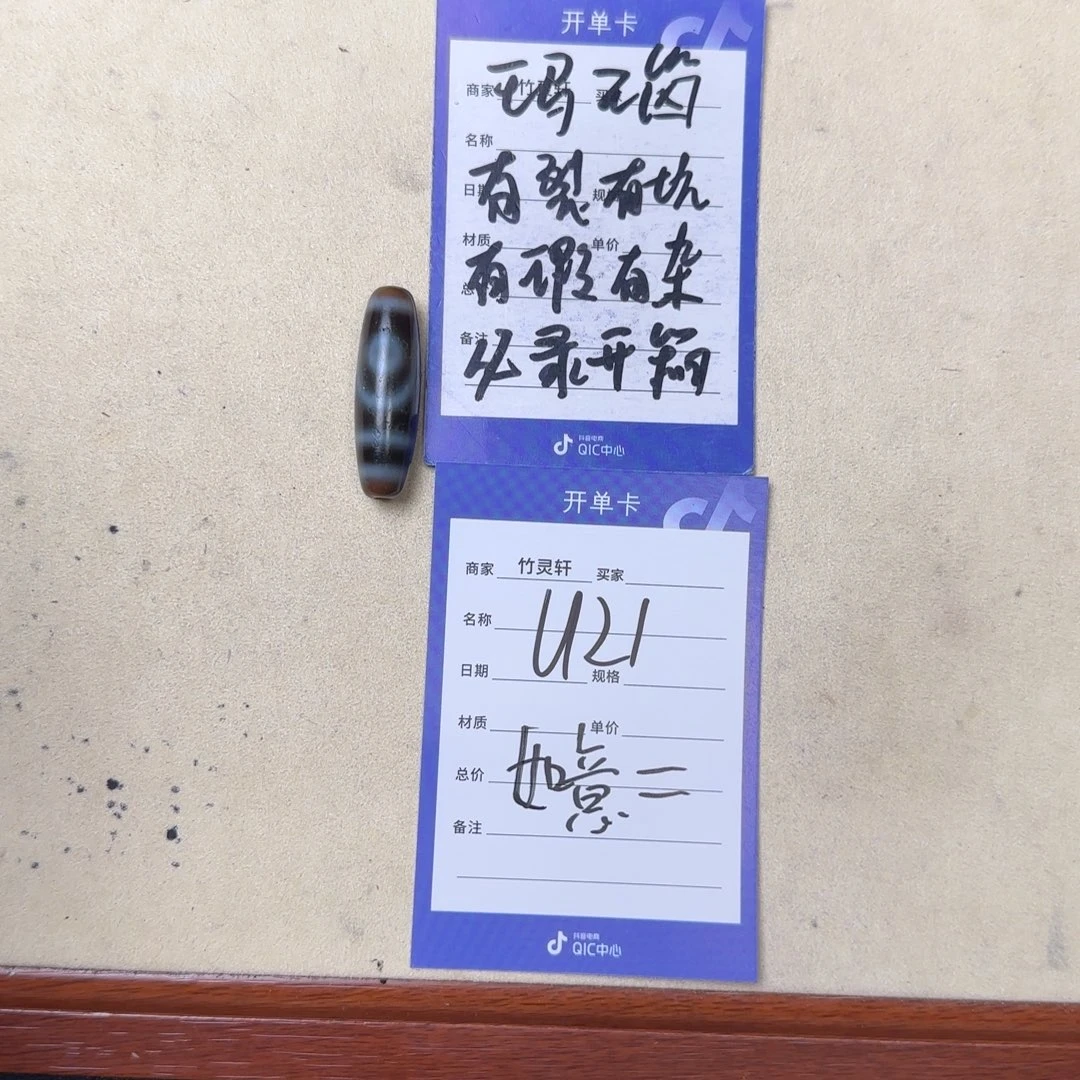 开单卡
商家 竹灵轩 买
玛瑙
名称
日期 规格
有裂有坑
材质 单价
有瑕有杂
总
备注
必录开箱
抖音电商
QIC中心
开单卡
商家 竹灵轩 买家
名称
U21
日期 规格
材质 单价
如意二
总价
备注
抖音电商
QIC中心